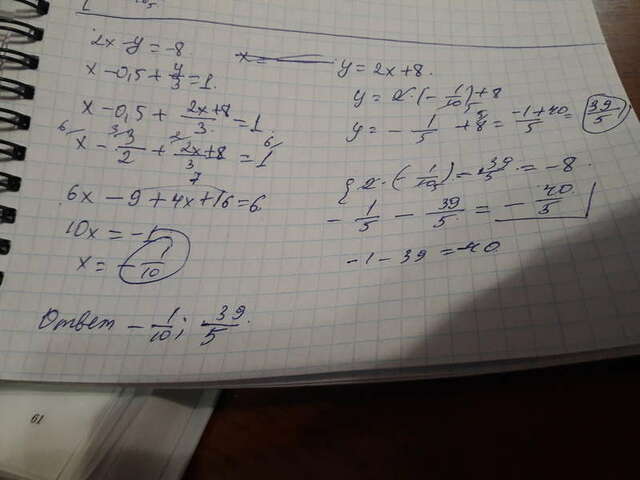 2x - y = -8
x - 0,5 + y/3 = 1.
x - 0,5 + (2x+8)/3 = 1
x - 3/2 + (2x+8)/3 = 1
6x - 9 + 4x + 16 = 6
10x = -1
x = -1/10
y = 2x + 8.
y = 2·(-1/10) + 8
y = -1/5 + 8 = (-1+40)/5 = 39/5
{ 2·(-1/10) - 39/5 = -8.
-1/5 - 39/5 = -40/5
-1 - 39 = -40
Ответ -1/10; 39/5.
61